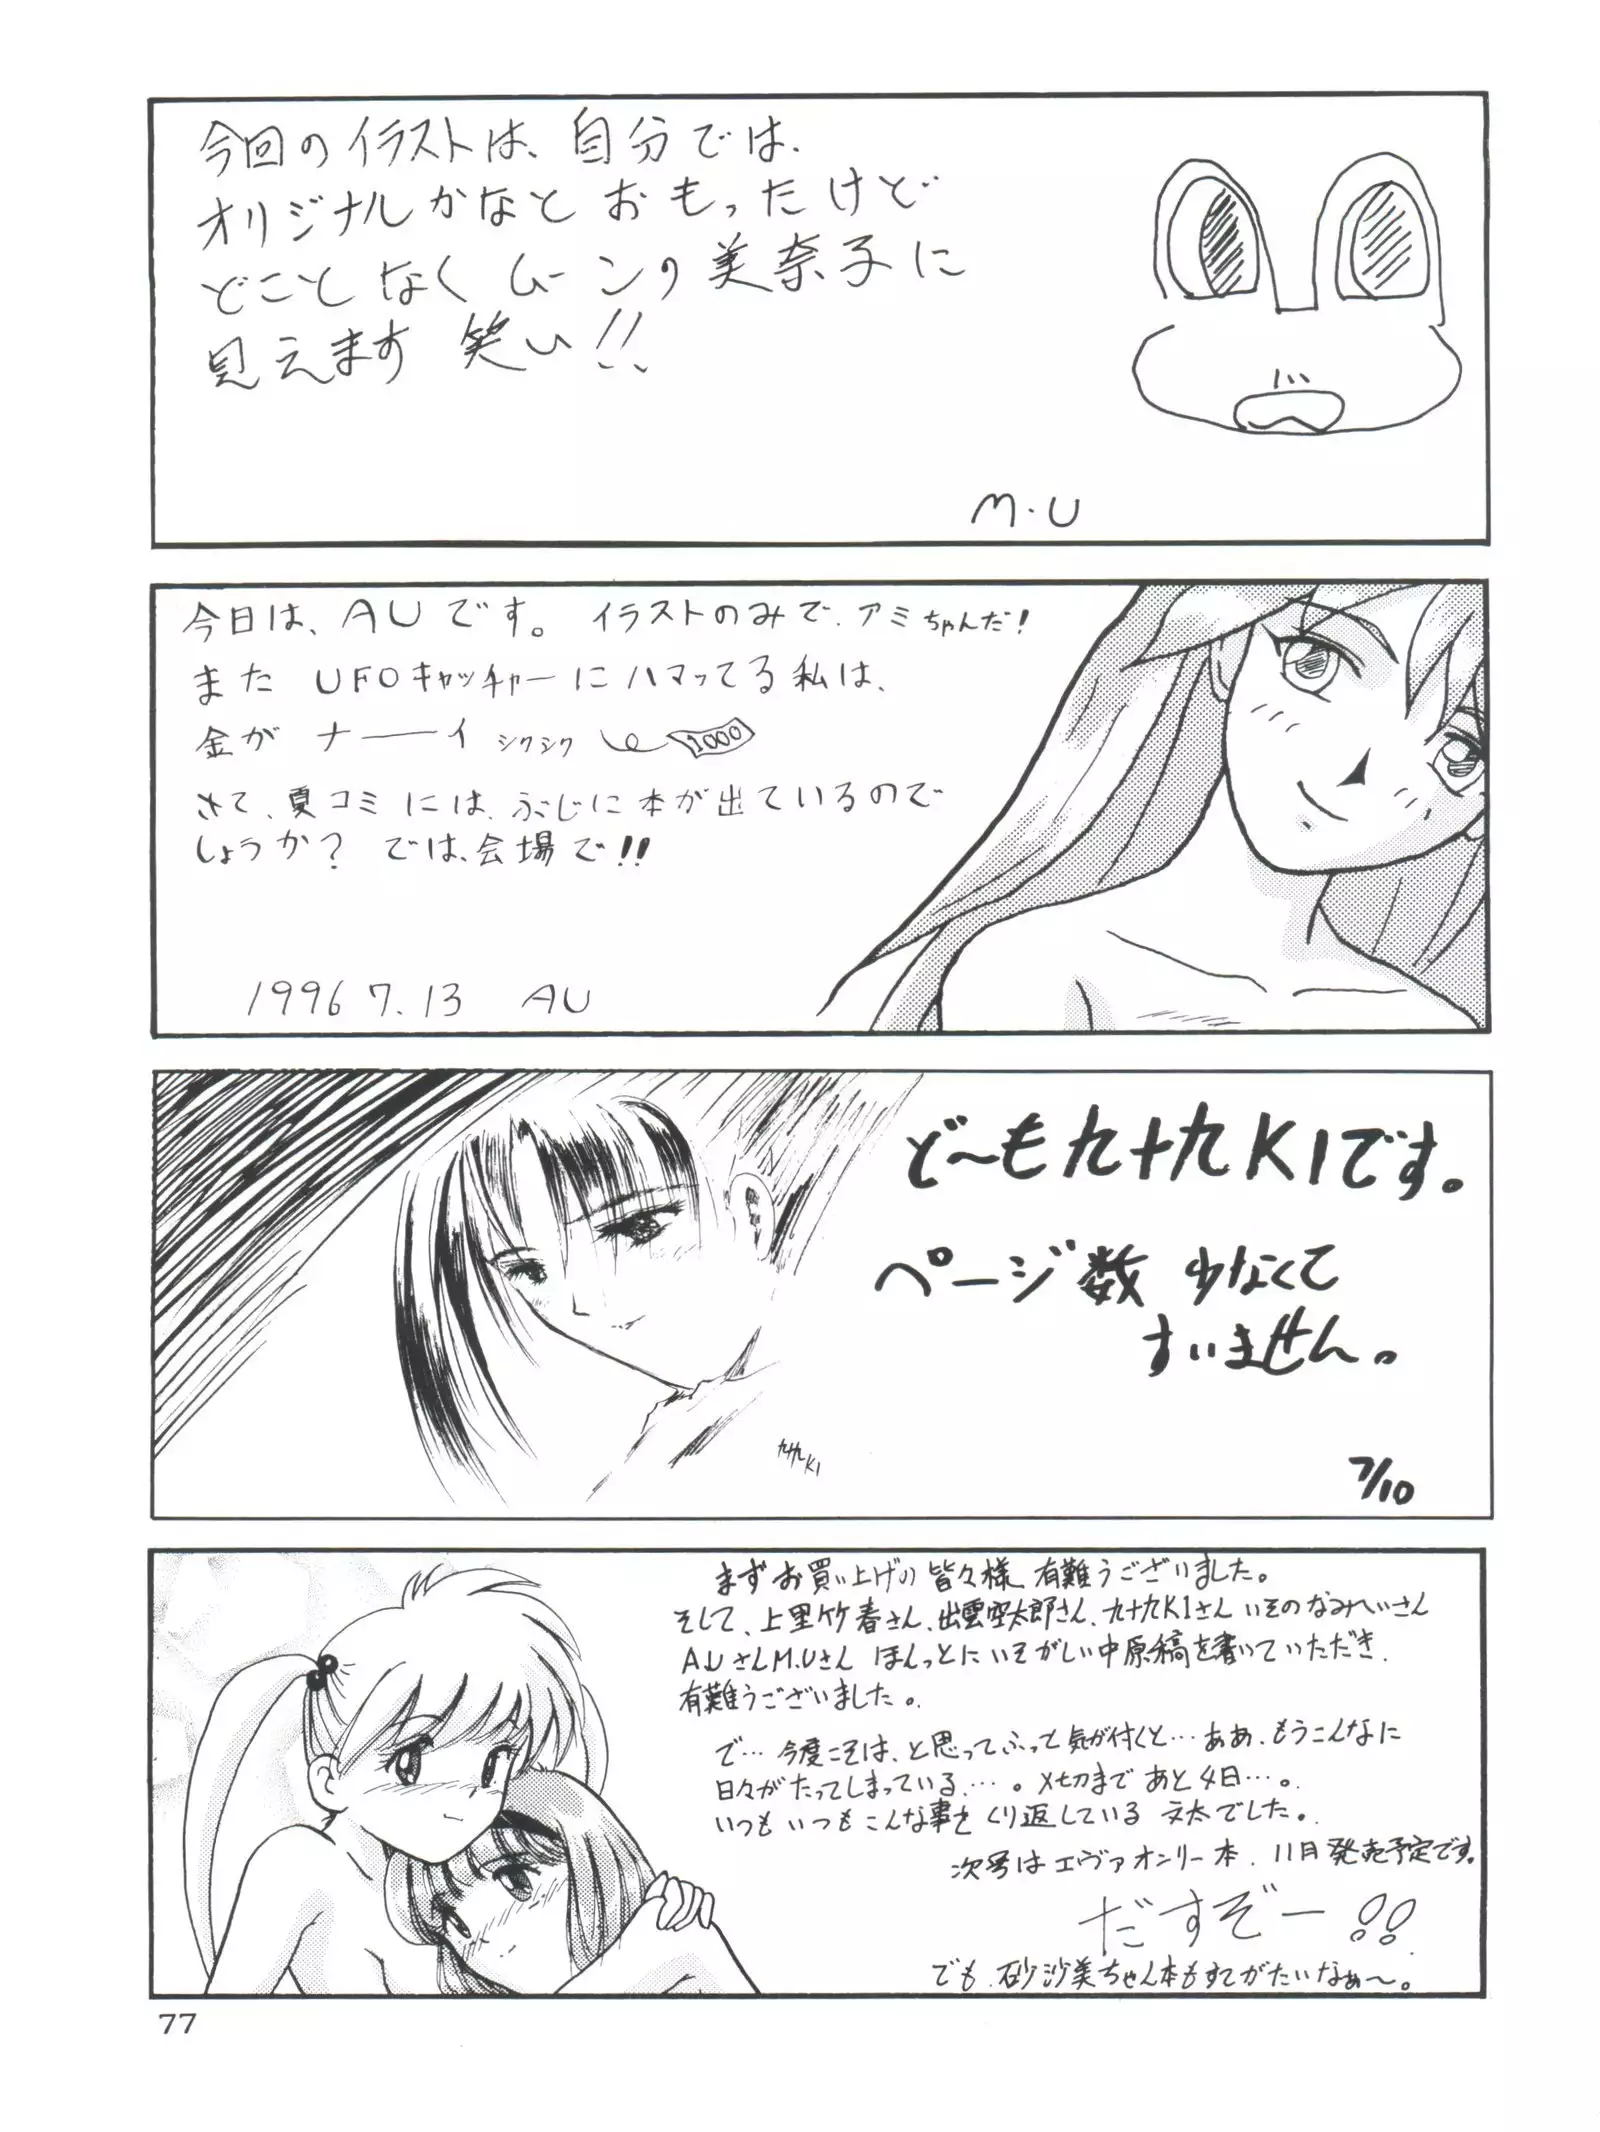 今回のイラストは、自分では、
オリジナルかなと おもったけど
どことなく ムーンの美奈子に
見えます 笑い!!
M.U
今日は、AUです。 イラストのみで、アミちゃんだ!
また UFOキャッチャーにハマってる私は、
金が ナ――イ シクシク 1000
さて、夏コミには、ぶじに本が出ているので
しょうか? では、会場で!!
1996 7.13 AU
ど〜も九十九K1です。
ページ数 少なくて
すいません。
九十九K1
7/10
まずお買い上げの皆々様、有難うございました。
そして、上里竹春さん、出雲空太郎さん、九十九K1さん いそのなみへいさん
A.UさんM.Uさん ほんっとにいそがしい中原稿を書いていただき、
有難うございました。
で…今度こそは、と思ってふって気が付くと…ああ、もうこんなに
日々がたってしまっている…。〆切まであと4日…。
いつもいつもこんな事をくり返している 文太でした。
次号はエヴァオンリー本、11月発売予定です。
だすぞー!!
でも、砂沙美ちゃん本もすてがたいなぁ〜。
77